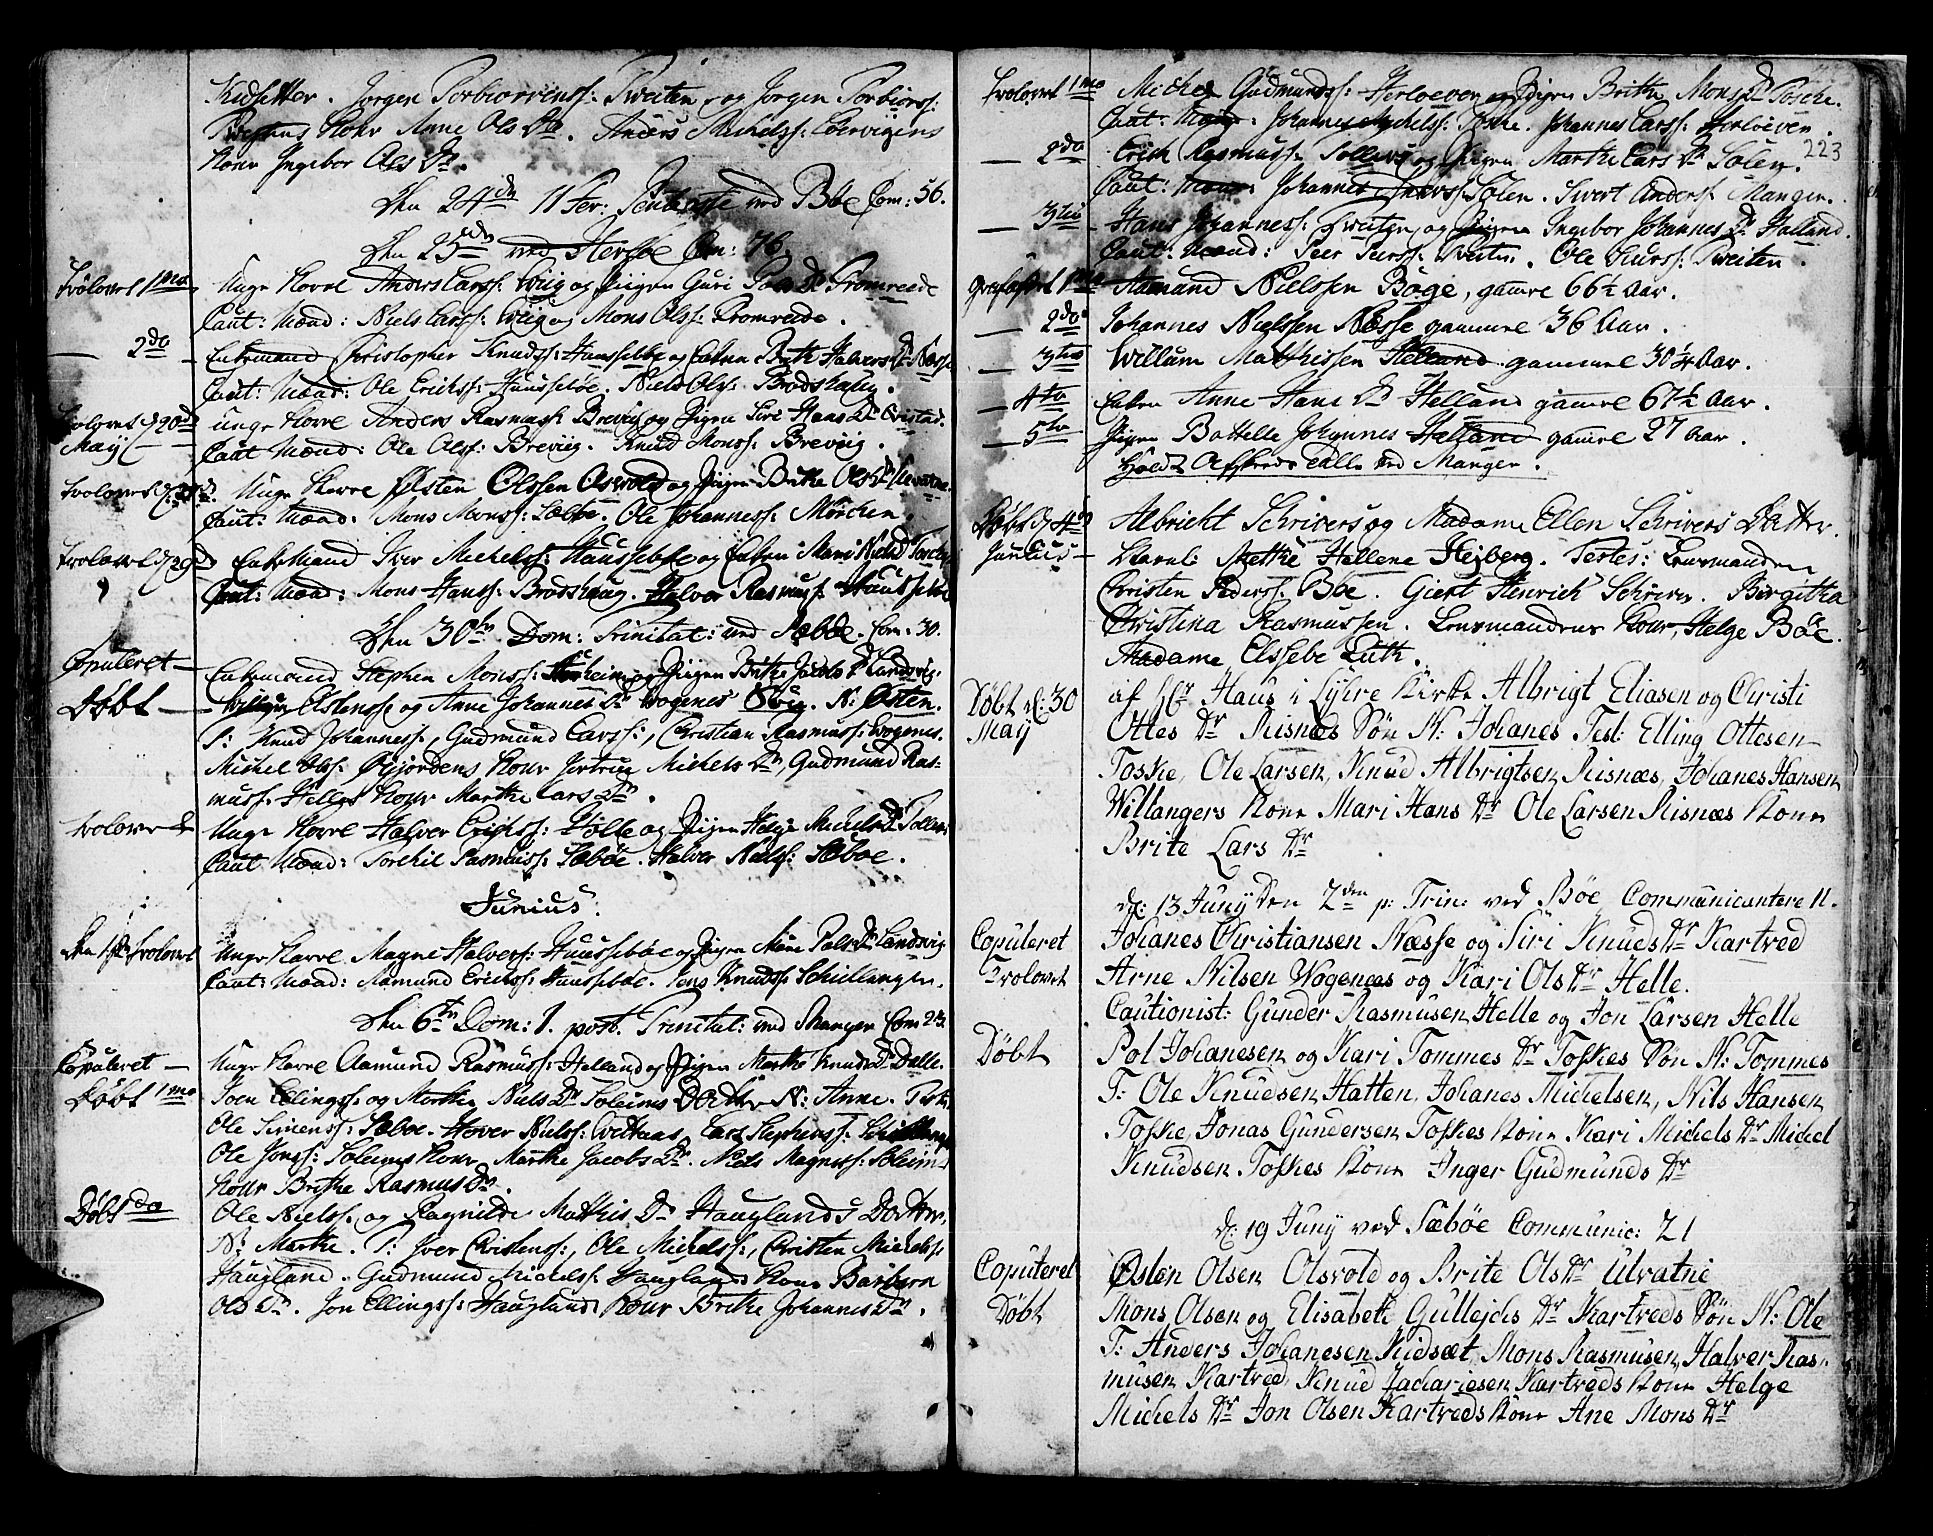 Kidsetter. Jørgen Torbiørnss: Tweiten og Jørgen Torbiørs:
Tweitens Konr Anne Ols Dr. Anders Michelss: Lervigens
Konr Ingebor Ols Dr.
Den 24de II Fer: Pentecoste ved Bøe Com: 56.
Den 25de ved Herløe Com: 76.
Trolovet 1mo Unge Karl Anders Larss: Wiig og Pigen Guri Pols Dr Fromreide
Caut: Mænd: Niels Larss: Wiig og Mons Olss: Fromreide.
— 2do Enkemand Christopher Knudss: Huussebøe og Enken Brite Halvers Dr Næsse
Caut: Mænd: Ole Erichss: Huussebøe. Niels Olss: Brodshaug.
Trolovet d. 20de unge Karl Anders Rasmuss: Breviig og Pigen Siri Hans Dr
May Caut Mænd: Ole Olss: Breviig. Knud Monss: Breviig.
Trolovet d. Unge Karl Østen Olssen Oswold og Pigen Brite Ols Dr
Caut: Mænd: Mons Monss: Sæbøe. Ole Johanness: Mørchen.
Trolovet d. 29de Enkemand Iver Michelss: Huussebøe og Enken Mari Niels Dr
Caut: Mænd: Mons Hanss: Brodshaug. Halver Rasmuss: Huussebøe
Den 30te Dom: Trinitat: ved Sæbøe. Com: 30.
Copuleret — Enkemand Stephen Monss: og Pigen Brite Jacobs Dr Landsvig.
Døbt — Elstenss: og Anne Johannes Dr Wogenes N: Østen.
T: Knud Johanness:, Gudmund Larss:, Christian Rasmuss: Wogenes.
Michel Olss: Øyjordens Konr Jertrue Michels Dr, Gudmund Ras-
muss: Helles Konr Marthe Lars Dr.
Trolovet Unge Karl Halver Erichss: Hølle og Pigen Helje Michels Dr
Caut: Mænd: Torchil Rasmuss: Sæbøe. Halver Nielss: Sæbøe.
Junius.
Den 1ste Trolovet Unge Karl Magne Halverss: Huussebøe og Pigen Mari Pols Dr Landsvig
Caut: Mænd: Aamund Erichss: Huussebøe. Jens Knudss: Schiellanger.
Den 6te Dom: 1. post. Trinitat: ved Manger Com 23.
Copuleret — Unge Karl Aamund Rasmuss: Helland og Pigen Marthe Knuds Dr Dalle.
Døbt 1mo Joen Ellingss: og Marthe Niels Dr Soleims Datter N: Anne. Test:
Ole Simenss: Sæbøe. Hover Nielss: Lars Stephenss:
Ole Jonss: Soleims Konr Marthe Jacobs Dr. Niels Magness: Soleims
Konr Brithe Rasmus Dr.
Døbt 2do Ole Nielss: og Ragnilde Mathis Dr Hauglands Datter,
N: Marthe. T: Iver Christenss:, Ole Michelss:, Christen Michelss:
Haugland. Gudmund Michelss: Hauglands Konr Barbara
Ols Dr. Jon Ellingss: Hauglands Konr Brithe Johannes Dr.
223
Trolovet 1mo Michel Gudmundss: Herloever og Pigen Brithe Mons Dr Toske.
Caut: Mænd: Johannes Michelss: Toske. Johannes Larss: Herloever.
— 2do Erich Rasmuss: Tollevs og Pigen Marthe Lars Dr Solen.
Caut: Mænd: Johannes Iverss: Solen. Siwert Anderss: Manger.
— 3tio Hans Johanness: Tweiten og Pigen Ingebor Johannes Dr Halland.
Caut: Mænd: Peer Perss: Tweiten. Ole Siurss: Tweiten.
Grafæstet 1mo Aamund Nielssen Bøge, gamel 66½ Aar.
— 2do Johannes Nielssen Næsse gammel 36 Aar.
— 3tio Willum Mathissen Helland gammel 30¼ Aar.
— 4to Enken Anne Hans Dr Helland gamel 67½ Aar.
— 5to Pigen Bottelle Johannes Helland gamel 27 Aar.
Holdt Afskeeds Talle ved Manger.
Døbt d. 4de Albricht Schrivers og Madame Ellen Schrivers Datter.
Junius — Mette Hellene Hejberg. Testes: Lensmanden
Christen Pederss: Bøe. Giert Hinrich Schriver. Birgitha
Christina Rasmussen. Lensmandens Konr, Helge Bøe.
Madame Elssebe Luth.
Døbt d: 30 af Hr Haus i Lyhre Kirke Albrigt Eliasen og Christi
May Ottes Dr Risnæs Søn N: Johanes Test: Elling Ottesen
Toske, Ole Larsen, Knud Albrigtsen Risnæs, Johanes Hansen
Willangers Kone Mari Hans Dr Ole Larsen Risnæs Kone
Brite Lars Dr
d: 13 Juny Den 2den p: Trin: ved Bøe Communicantere 11.
Copuleret Johanes Christiansen Næsse og Siri Knuds Dr Kartved
Trolovet Arne Nilsen Wogenæs og Kari Ols Dr Helle.
Cautionist: Gunder Rasmusen Helle og Jon Larsen Helle
Døbt Pol Johanesen og Kari Tommes Dr Toskes Søn N: Tommes
T: Ole Knudsen Hatten, Johanes Michelsen, Nils Hansen
Toske, Jonas Gundersen Toskes Kone Kari Michels Dr Michel
Knudsen Toskes Kone Inger Gudmunds Dr
d: 19 Juny ved Sæbøe Communic: 21
Copuleret Østen Olsen Olsvold og Brite Ols Dr Ulvatne
Døbt Mons Olsen og Elisabeth Gulleichs Dr Kartveds Søn N: Ole
T: Anders Johanesen Kidsæt, Mons Rasmusen, Halver Ras-
musen Kartved, Knud Zachariesen Kartveds Kone Helge
Michels Dr Jon Olsen Kartveds Kone Ane Mons Dr